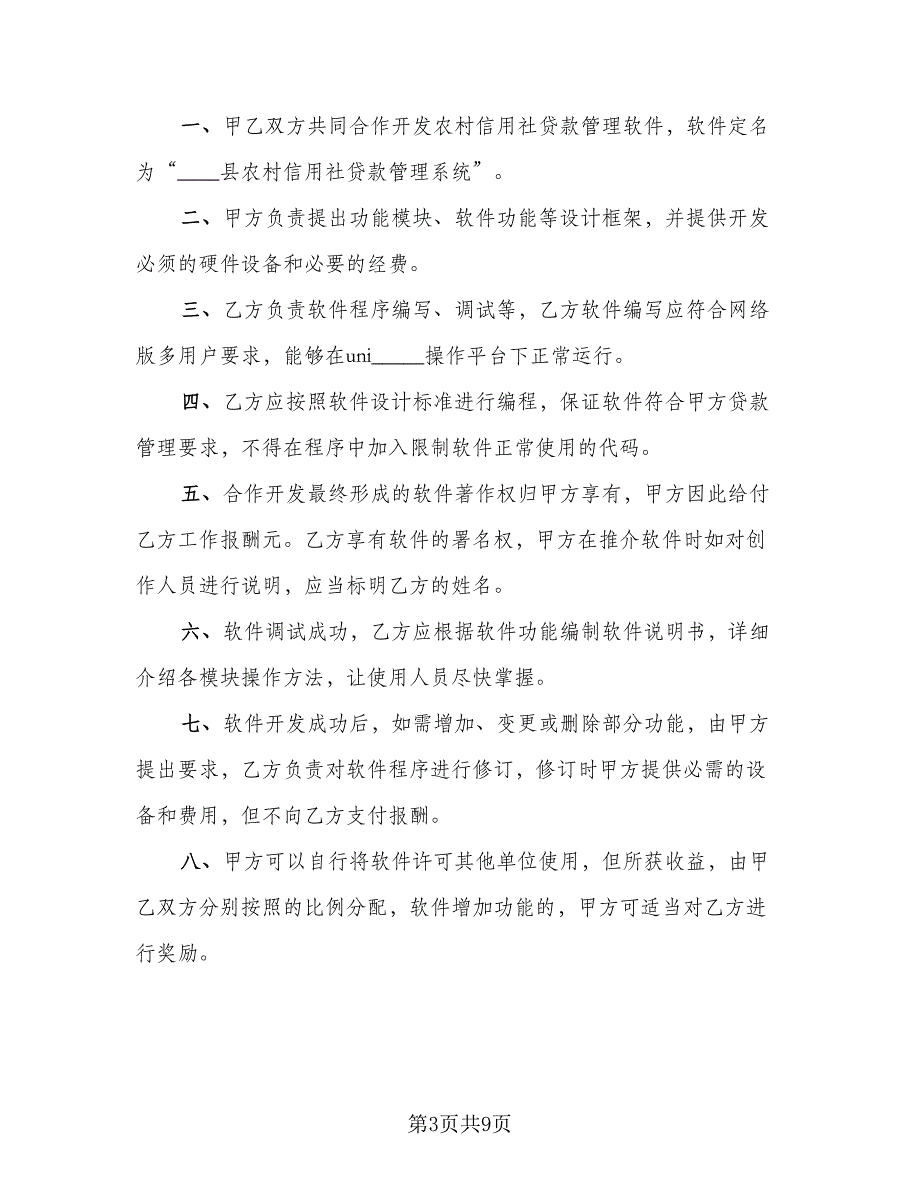 一、甲乙双方共同合作开发农村信用社贷款管理软件，软件定名
为“____县农村信用社贷款管理系统”。
二、甲方负责提出功能模块、软件功能等设计框架，并提供开发
必须的硬件设备和必要的经费。
三、乙方负责软件程序编写、调试等，乙方软件编写应符合网络
版多用户要求，能够在uni_____操作平台下正常运行。
四、乙方应按照软件设计标准进行编程，保证软件符合甲方贷款
管理要求，不得在程序中加入限制软件正常使用的代码。
五、合作开发最终形成的软件著作权归甲方享有，甲方因此给付
乙方工作报酬元。乙方享有软件的署名权，甲方在推介软件时如对创
作人员进行说明，应当标明乙方的姓名。
六、软件调试成功，乙方应根据软件功能编制软件说明书，详细
介绍各模块操作方法，让使用人员尽快掌握。
七、软件开发成功后，如需增加、变更或删除部分功能，由甲方
提出要求，乙方负责对软件程序进行修订，修订时甲方提供必需的设
备和费用，但不向乙方支付报酬。
八、甲方可以自行将软件许可其他单位使用，但所获收益，由甲
乙双方分别按照的比例分配，软件增加功能的，甲方可适当对乙方进
行奖励。
第3页共9页